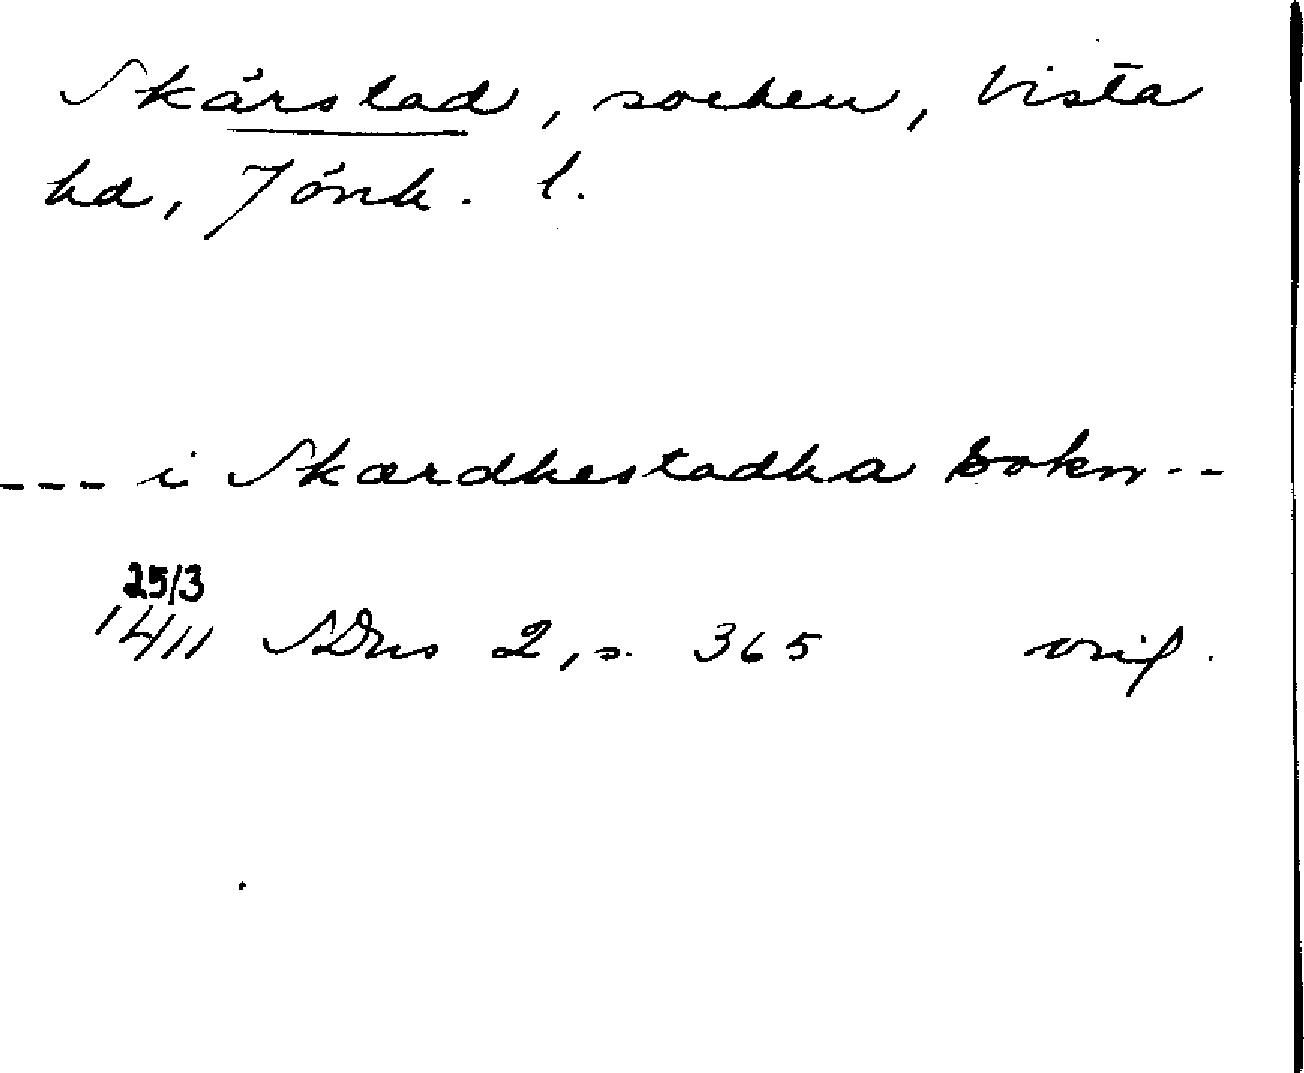 Skärstad, socken, Vista
hd, Jönk. l.
--- i Skærdhestadha sokn --
25/3
1411 SDns 2, s. 365 orig.